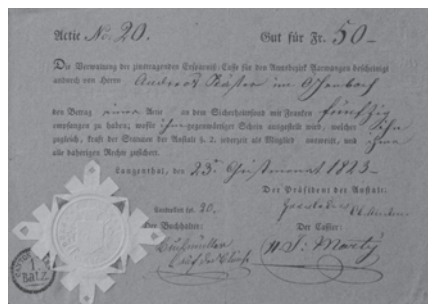 Actie No. 20. Gut für Fr. 50 –
Die Verwaltung der zinstragenden Ersparniß-Casse für den Amtsbezirk Aarwangen bescheinigt
andurch von Herrn Andreas
den Betrag einer Actie an dem Sicherheitsfond mit Franken fünfzig
empfangen zu haben; wofür ihm gegenwärtiger Schein ausgestellt wird, welcher ihn
zugleich, kraft der Statuten der Anstalt §. 2. jederzeit als Mitglied ausweist, und ihm
alle daherigen Rechte zusichert.
Langenthal, den 23n Christmonat 1823 –
Der Präsident der Anstalt:
fol. 20.
Der Buchhalter: Der Cassier:
J: Marti